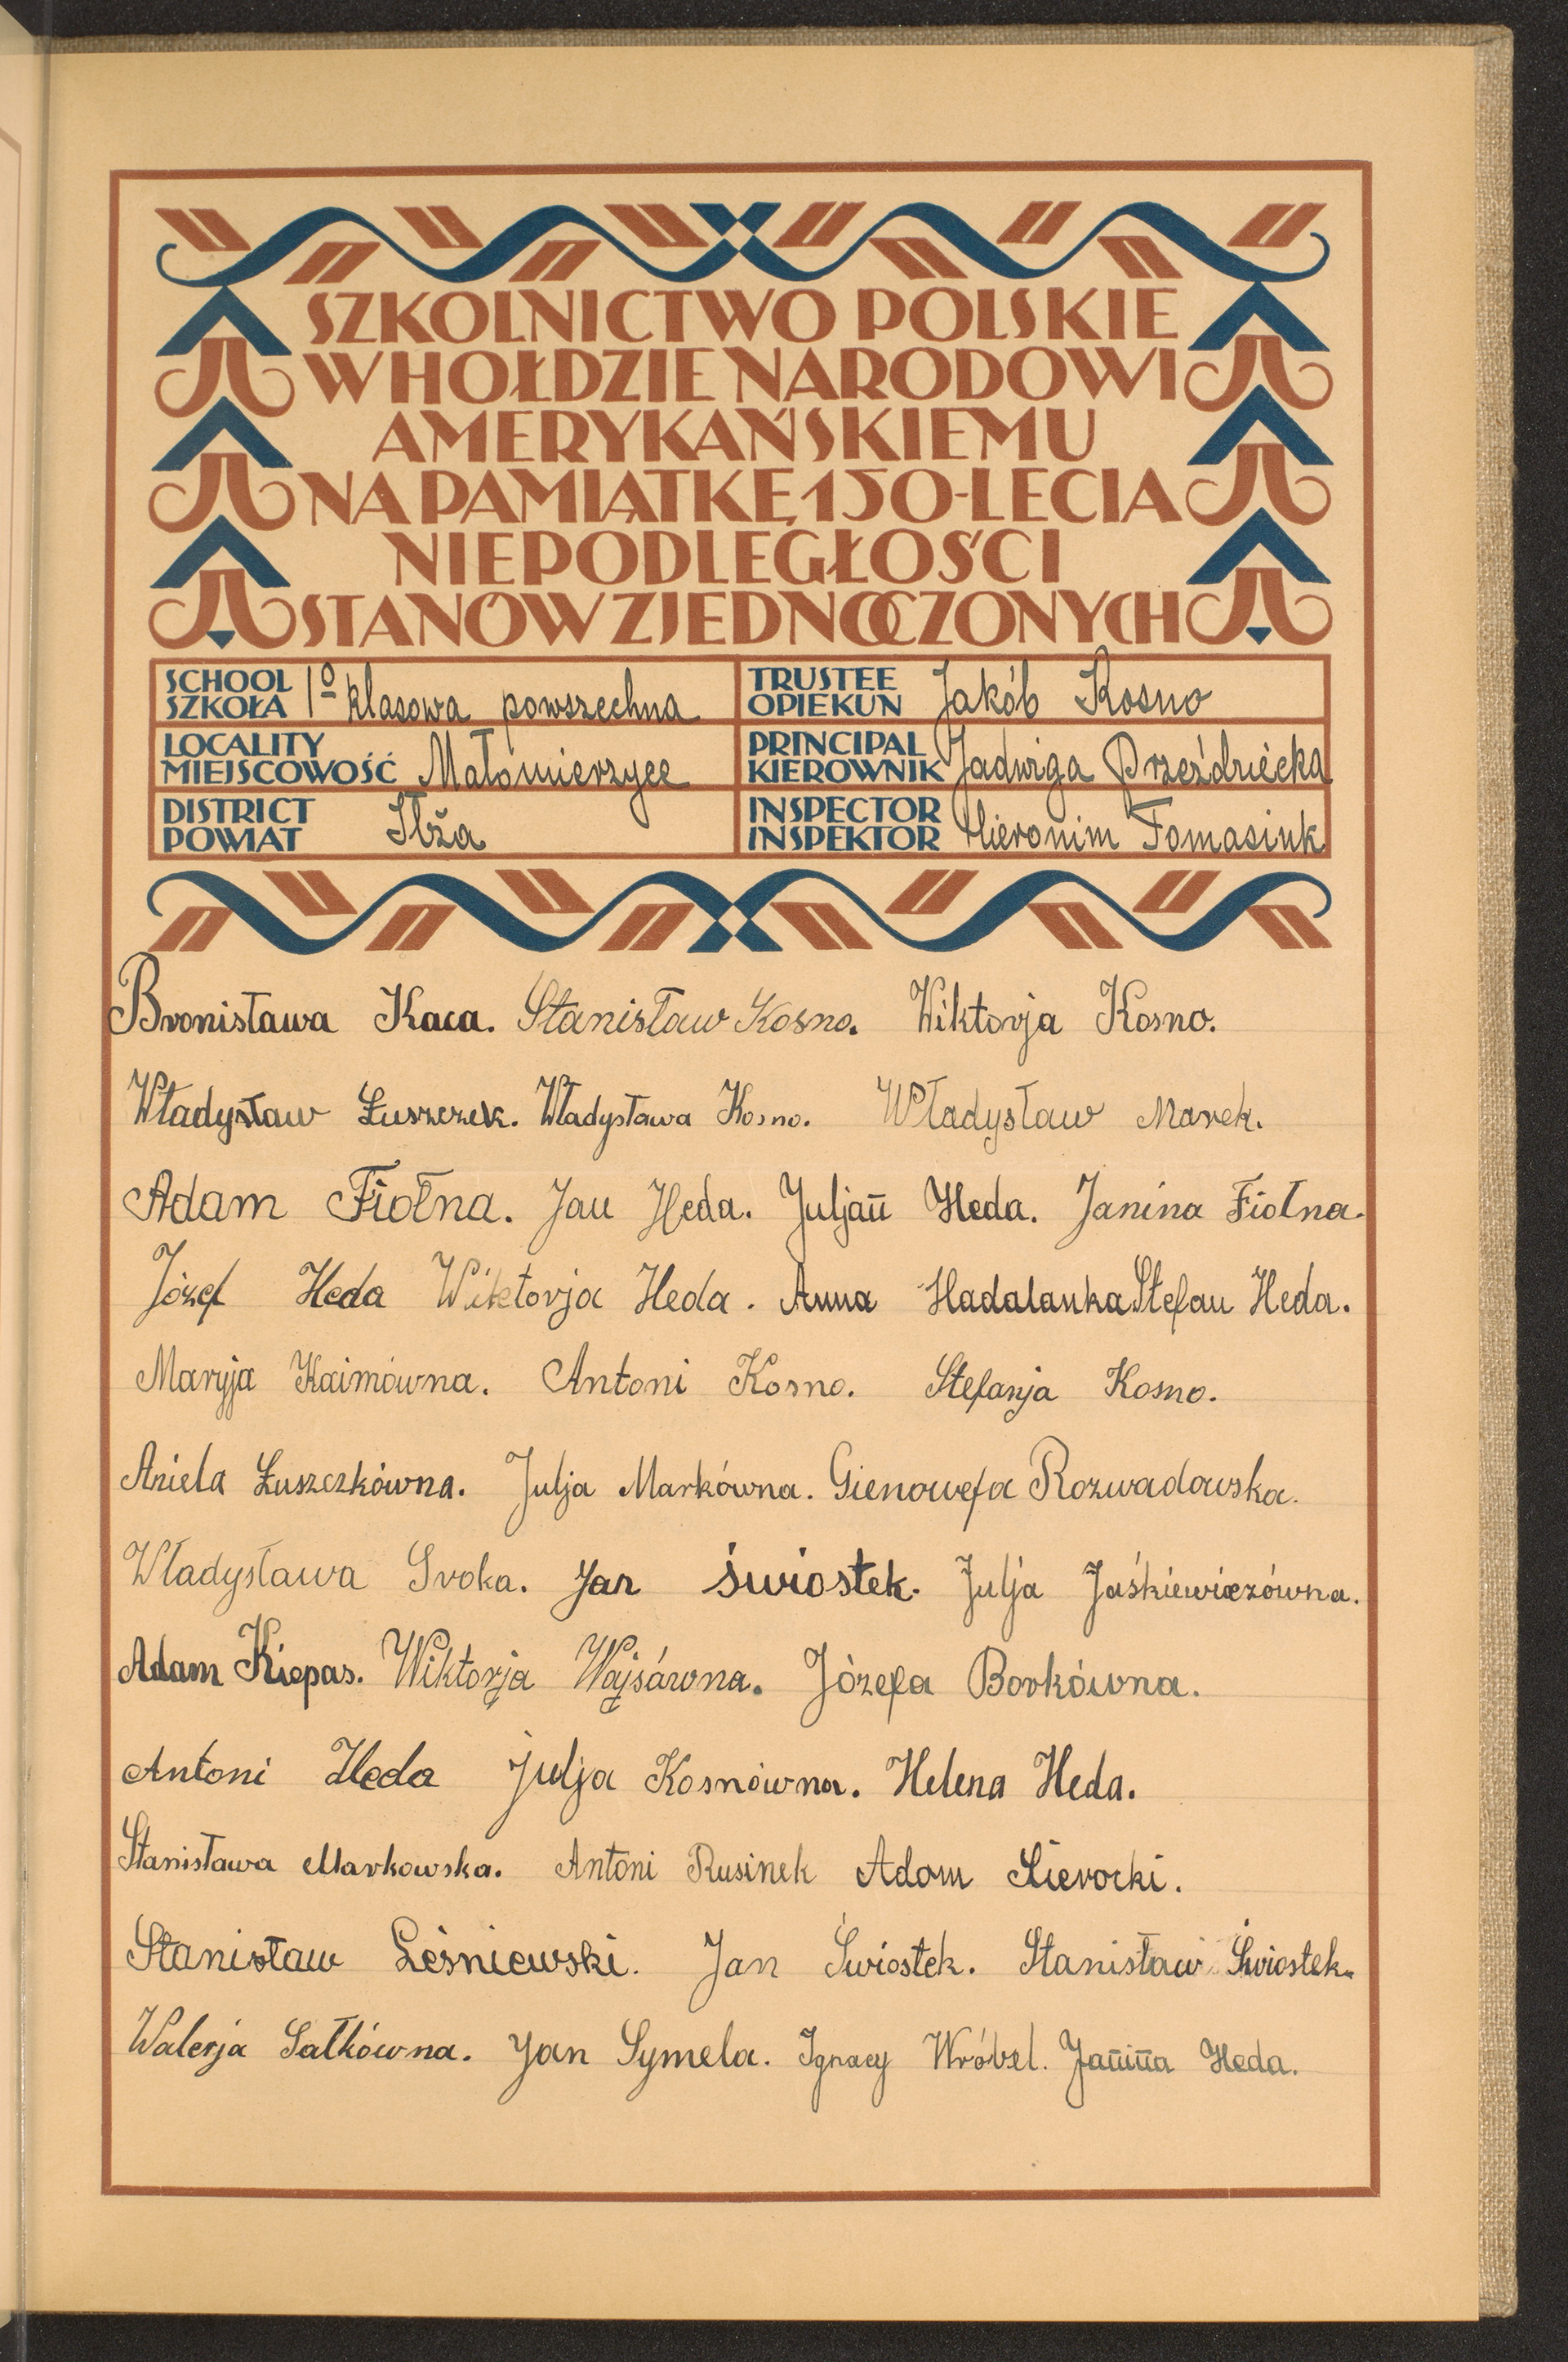 SZKOLNICTWO POLSKIE
W HOŁDZIE NARODOWI
AMERYKAŃSKIEMU
NA PAMIĄTKĘ 150-LECIA
NIEPODLEGŁOŚCI
STANÓW ZJEDNOCZONYCH
SCHOOL SZKOŁA 1º klasowa powszechna
TRUSTEE OPIEKUN Jakób Kosno
LOCALITY MIEJSCOWOŚĆ Małomierzyce
PRINCIPAL KIEROWNIK Jadwiga Przeździecka
DISTRICT POWIAT Iłża
INSPECTOR INSPEKTOR Hieronim Tomasiuk
Bronisława Kaca. Stanisław Kosno. Wiktorja Kosno.
Władysław Łuszczek. Władysława Kosno. Władysław Marek.
Adam Fiołna. Jan Heda. Juljan Heda. Janina Fiołna.
Józef Heda Wiktorja Heda. Anna Hadalanka Stefan Heda.
Maryja Kaimówna. Antoni Kosno. Stefanja Kosno.
Aniela Łuszczkówna. Julja Markówna. Gienowefa Rozwadowska.
Władysława Sroka. Jan świostek. Julja Jaśkiewiczówna.
Adam Kiepas. Wiktorja Wajsówna. Józefa Borkówna.
Antoni Heda Julja Kosnówna. Helena Heda.
Stanisława Markowska. Antoni Rusinek Adam Sierocki.
Stanisław Leśniewski. Jan Świostek. Stanisław Świostek.
Walerja Sałkówna. Jan Symela. Ignacy Wróbel. Janina Heda.